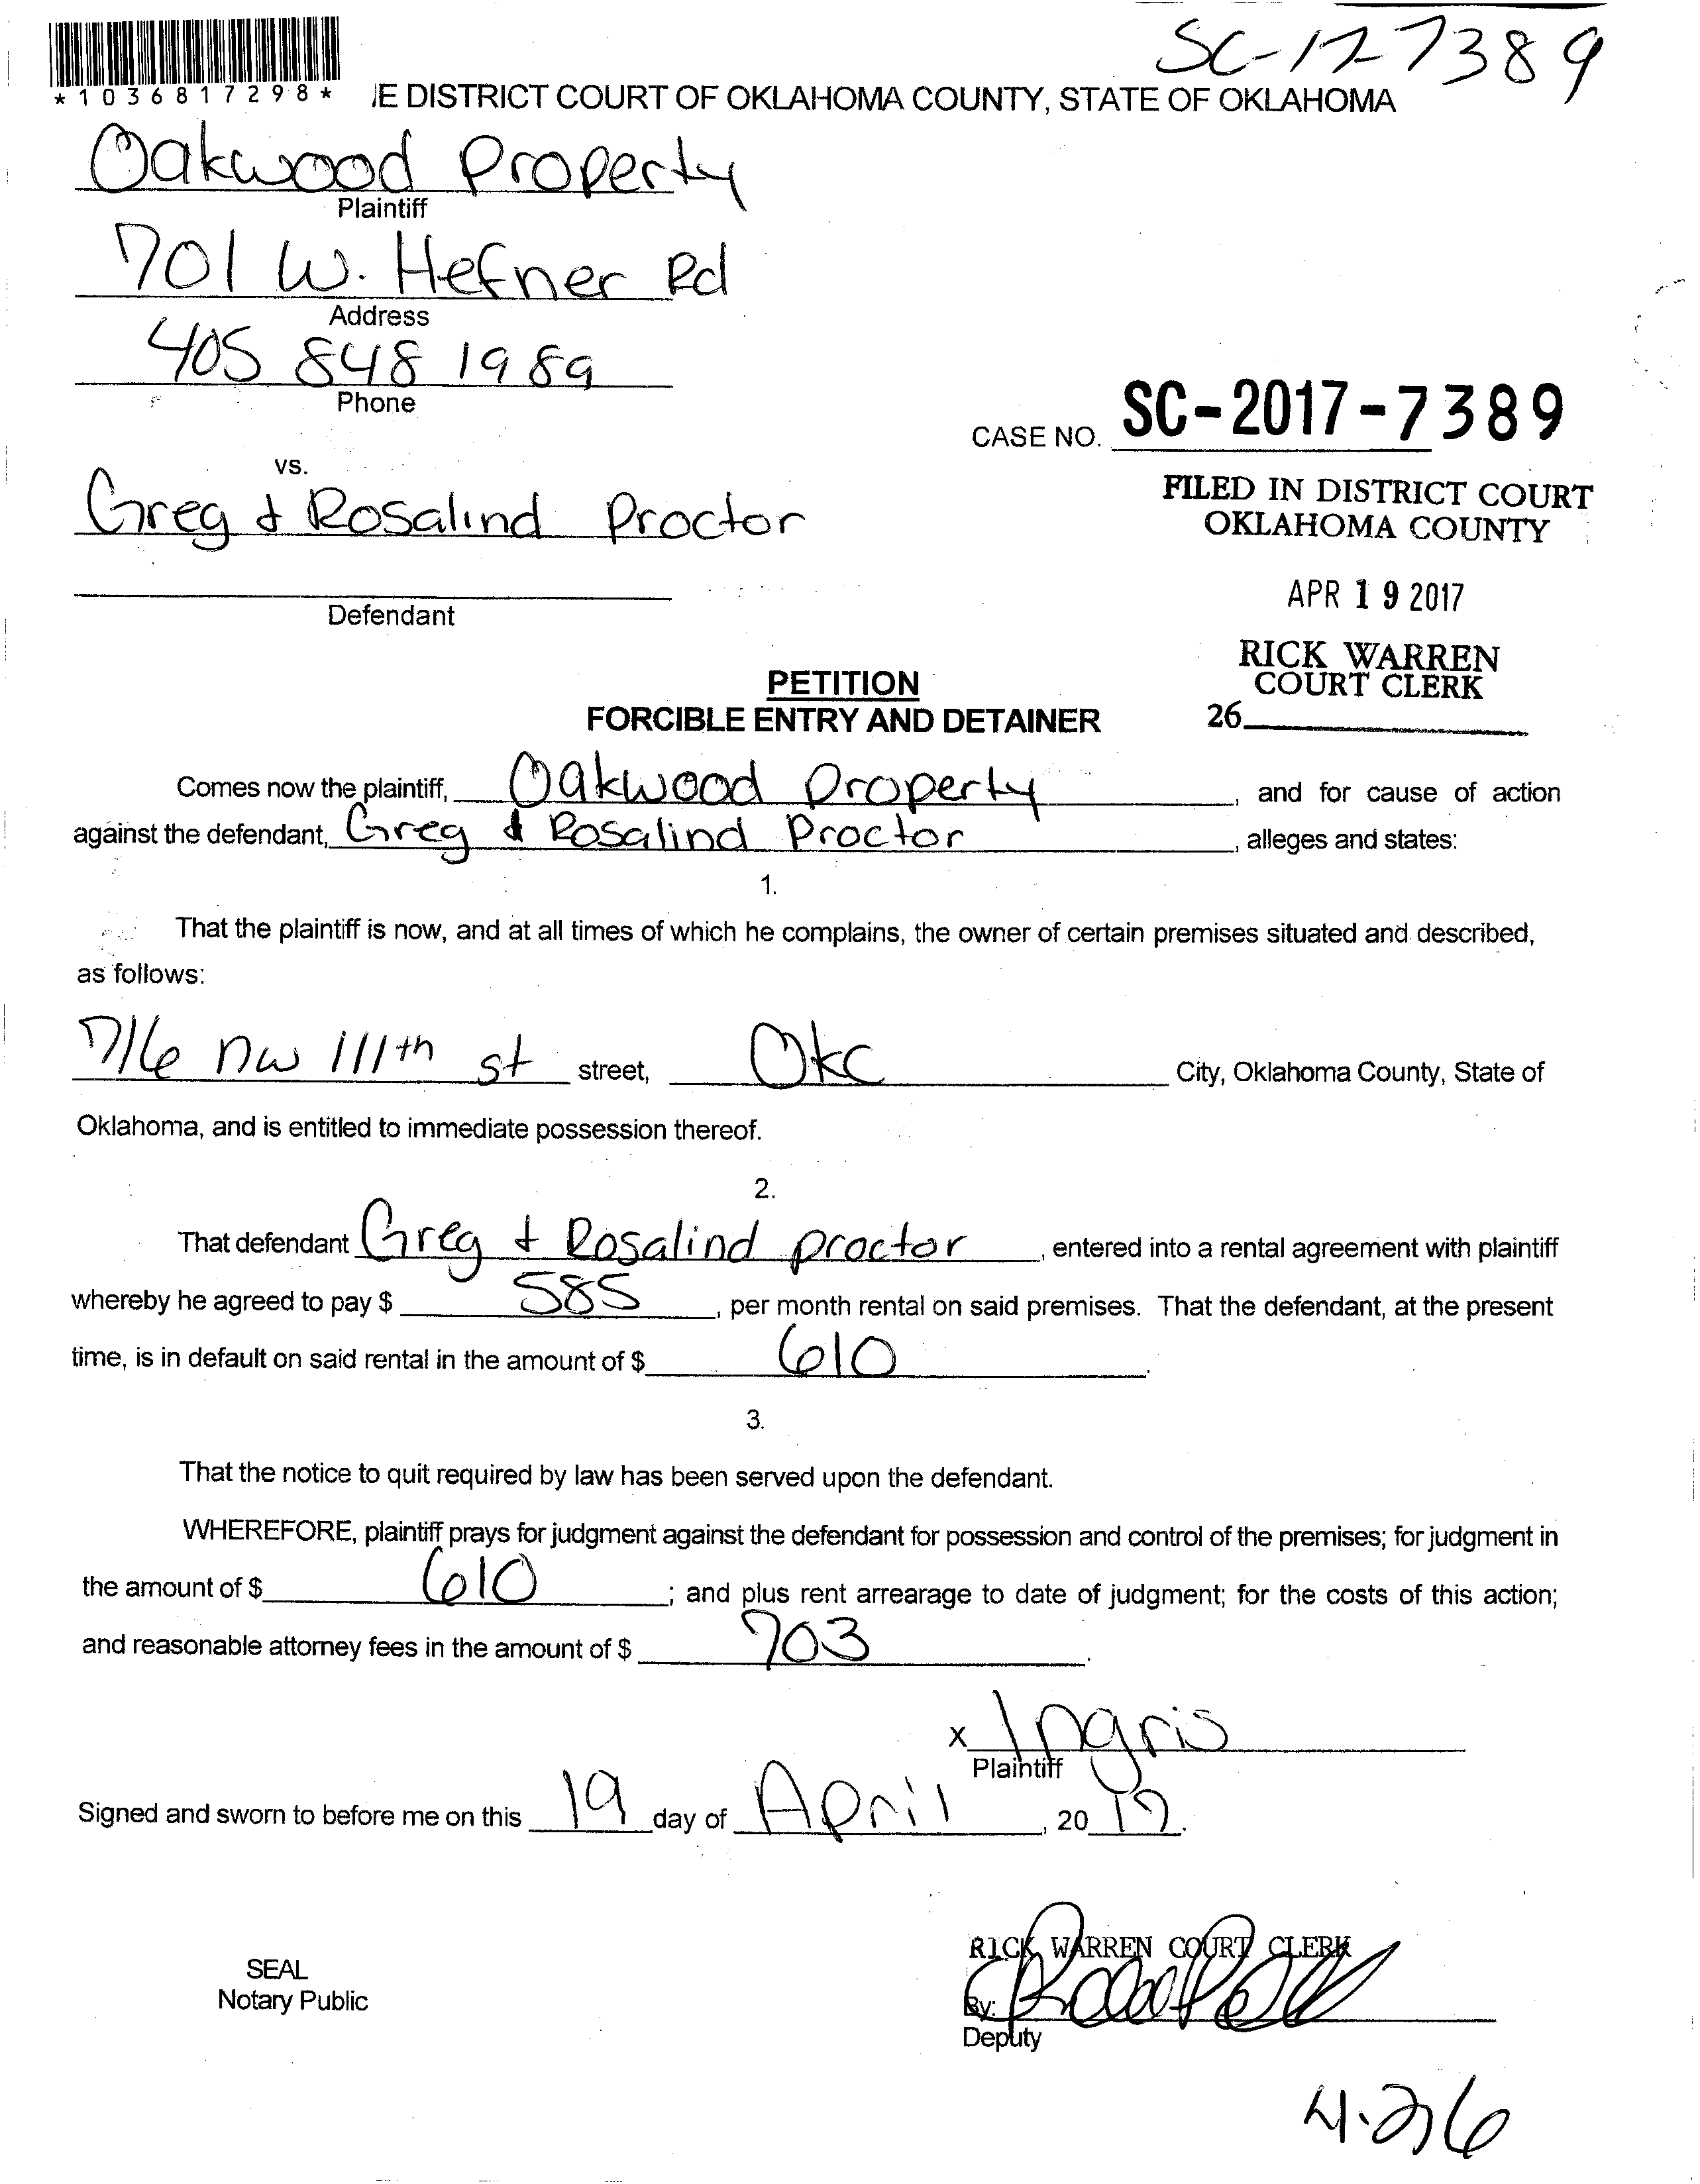 SC-17-7389
*1036817298*
E DISTRICT COURT OF OKLAHOMA COUNTY, STATE OF OKLAHOMA
Oakwood Property
Plaintiff
701 W. Hefner Rd
Address
405 848 1989
Phone
CASE NO. SC-2017-7389
vs.
Greg & Rosalind Proctor
Defendant
FILED IN DISTRICT COURT
OKLAHOMA COUNTY
APR 19 2017
RICK WARREN
COURT CLERK
26
PETITION
FORCIBLE ENTRY AND DETAINER
Comes now the plaintiff, Oakwood Property, and for cause of action
against the defendant, Greg & Rosalind Proctor, alleges and states:
1.
That the plaintiff is now, and at all times of which he complains, the owner of certain premises situated and described,
as follows:
716 NW 111th st street, OKC City, Oklahoma County, State of
Oklahoma, and is entitled to immediate possession thereof.
2.
That defendant Greg & Rosalind proctor, entered into a rental agreement with plaintiff
whereby he agreed to pay $ 585, per month rental on said premises. That the defendant, at the present
time, is in default on said rental in the amount of $ 610.
3.
That the notice to quit required by law has been served upon the defendant.
WHEREFORE, plaintiff prays for judgment against the defendant for possession and control of the premises; for judgment in
the amount of $ 610; and plus rent arrearage to date of judgment; for the costs of this action;
and reasonable attorney fees in the amount of $ 703.
X Ingris
Plaintiff
Signed and sworn to before me on this 19 day of April, 2017.
SEAL
Notary Public
RICK WARREN COURT CLERK
By:
Deputy
4.26